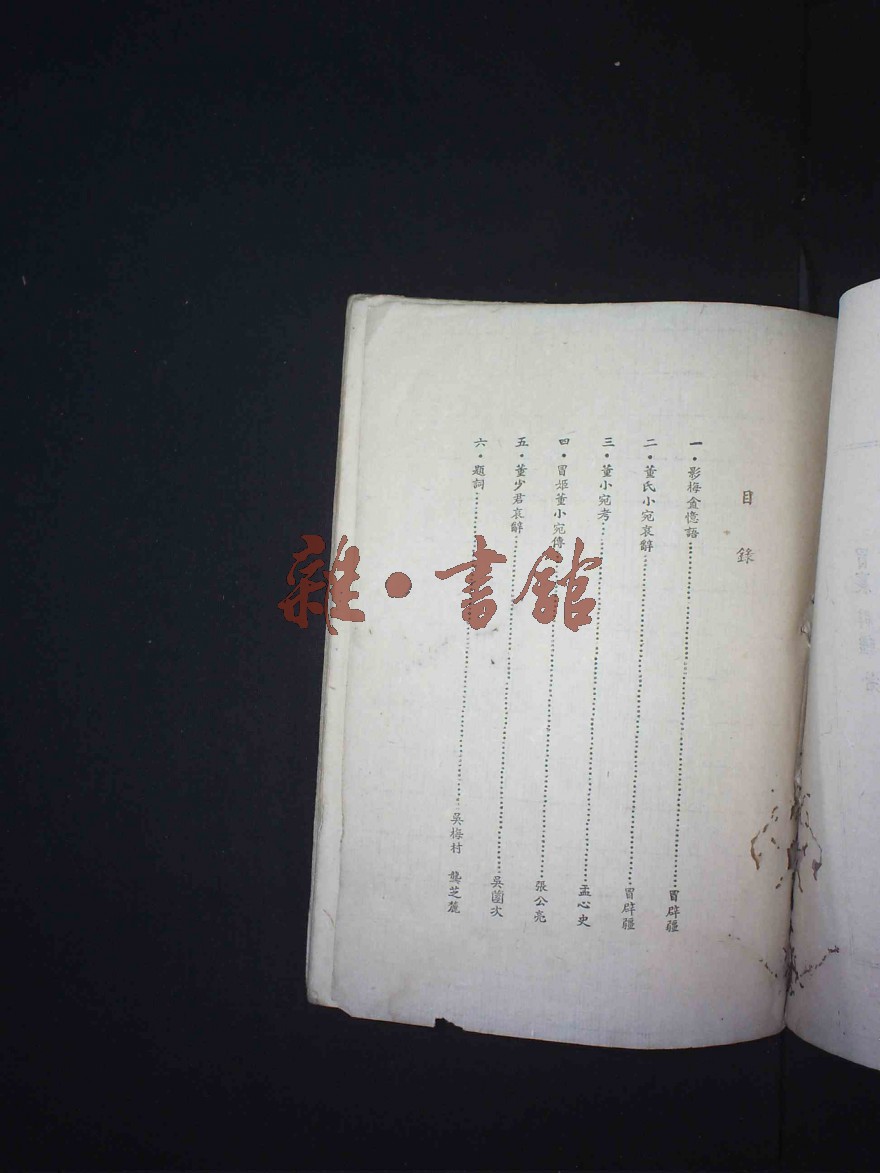 目錄
一・影梅盦憶語……冒辟疆
二・董氏小宛哀辭……冒辟疆
三・董小宛考……孟心史
四・冒姬董小宛傳……張公亮
五・董少君哀辭……吳薗次
六・題詞……吳梅村 龔芝麓
雜・書館